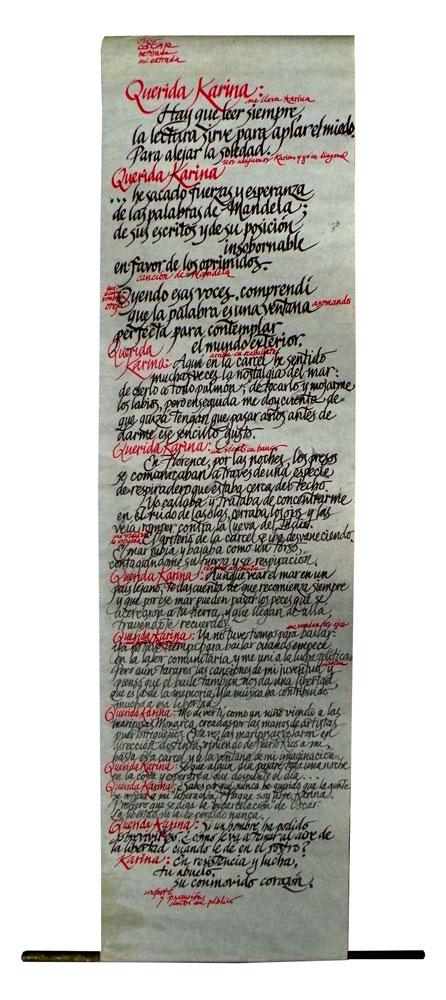 OSCAR
mi entrada
Querida Karina:
me lleva Karina
Hay que leer siempre,
la lectura sirve para aplar el miedo.
Para alejar la soledad.
Querida Karina
... he sacado fuerzas y esperanza
de las palabras de Mandela;
de sus escritos y de su posición
insobornable
en favor de los oprimidos.
canción de Mandela
Oyendo esas voces, comprendí
que la palabra es una ventana asomando
perfecta para contemplar
el mundo exterior.
Querida
Karina: Aquí en la cárcel he sentido
muchas veces la nostalgia del mar:
de olerlo a todo pulmón; de tocarlo y mojarme
los labios, pero enseguida me doy cuenta de
que quizá tengan que pasar años antes de
darme ese sencillo gusto.
Querida Karina:
En Florence, por las noches, los presos
se comunicaban a través de una especie
de respiradero que estaba cerca del techo.
Yo callaba y trataba de concentrarme
en el ruido de las olas, cerraba los ojos y las
veía romper contra la cueva del Indio.
El griterío de la cárcel se iba desvaneciendo.
El mar subía y bajaba como un torso,
contagiándome su fuerza y su respiración.
Querida Karina: Aunque vea el mar en un
país lejano, te das cuenta de que recomienza siempre
y que por ese mar pueden pasar los peces que se
acercaron a tu tierra, y que llegan de allá,
trayendo te recuerdos.
Querida Karina: Ya no tuve tiempo para bailar:
da no tuve tiempo para bailar cuando empecé
en la labor comunitaria, y me uní a la lucha política.
Pero aún tarareo las canciones de mi juventud
y pienso que el baile también nos da una libertad,
que es la de la memoria. La música ha contribuido
mucho a esa libertad.
Querida Karina: Me divertí como un niño viendo a las
mariposas Monarca, creadas por las manos de artistas
puertorriqueños. Esta vez, las mariposas volaron en
dirección distinta, viniendo de Puerto Rico a mí,
hasta esta cárcel y a la ventana de mi imaginación.
Querida Karina:
en la costa y esperaré a que despunte el día...
Querida Karina: Sabes por qué nunca he querido que la gente
se refiera a mi liberación? Porque soy libre, Karina.
Prefiero que se diga la "excarcelación" de Oscar.
La libertad no la he perdido nunca.
Querida Karina: Si un hombre ha podido
sobrevivir, cómo le va a temer al aire de
la libertad cuando le dé en el rostro?
Karina: En resistencia y lucha,
tu abuelo,
su conmovido corazón.